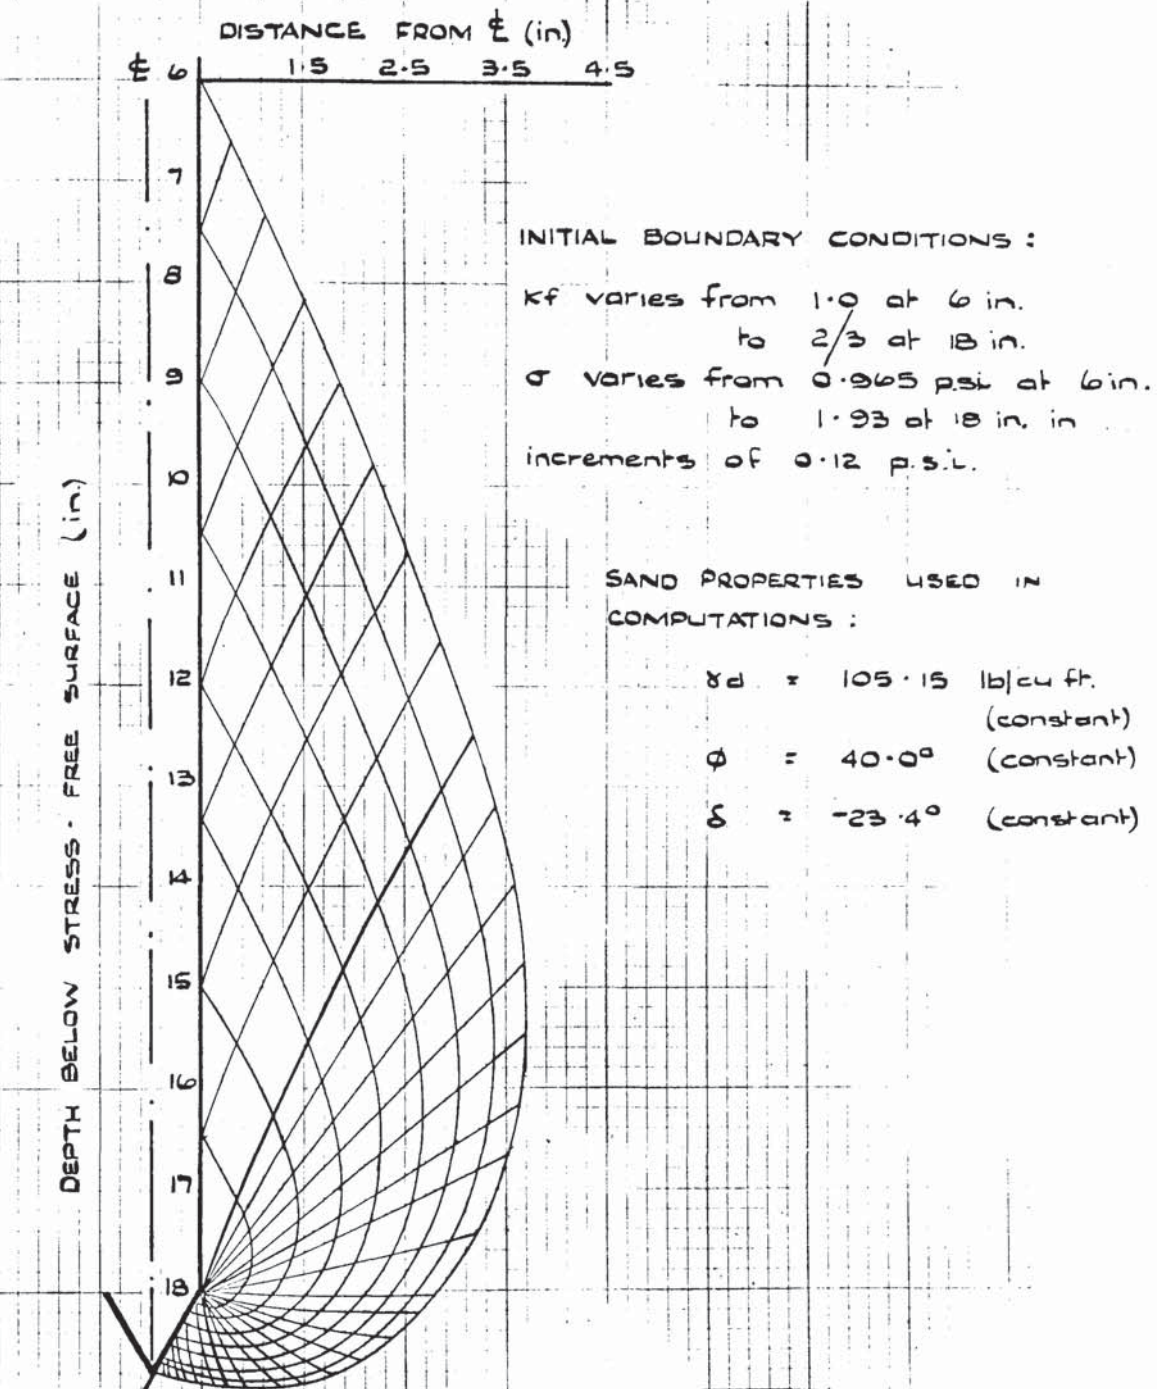 DISTANCE FROM ℄ (in.)
℄ 6 1.5 2.5 3.5 4.5
7
8
9
10
11
12
13
14
15
16
17
18
DEPTH BELOW STRESS - FREE SURFACE (in.)
INITIAL BOUNDARY CONDITIONS :
Kf varies from 1.0 at 6 in.
to 2/3 at 18 in.
σ varies from 0.965 psi at 6in.
to 1.93 at 18 in. in
increments of 0.12 p.s.i.
SAND PROPERTIES USED IN
COMPUTATIONS :
γd = 105.15 lb/cu ft.
(constant)
ϕ = 40.0° (constant)
δ = -23.4° (constant)